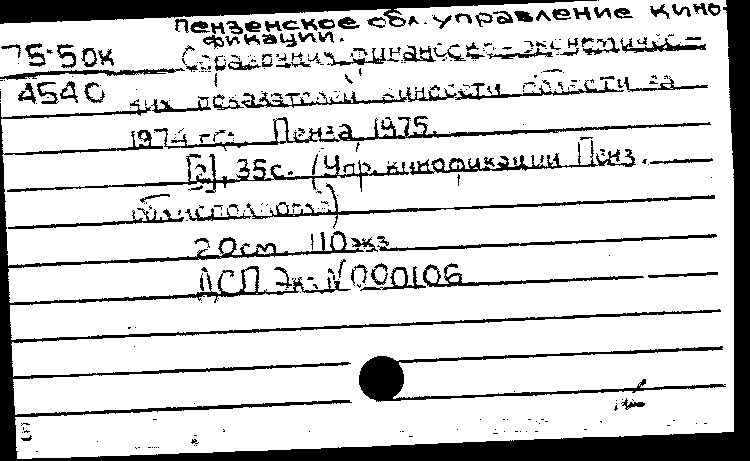 Пензенское обл. управление кино-
фикации.
75-50к
Справочник финансово-экономичес-
4540
ких показателей киносети области за
1974 год. Пенза, 1975.
[2], 35с. (Упр. кинофикации Пенз.
облисполкома)
20см. 110экз
ДСП. Экз. N 000106
Б